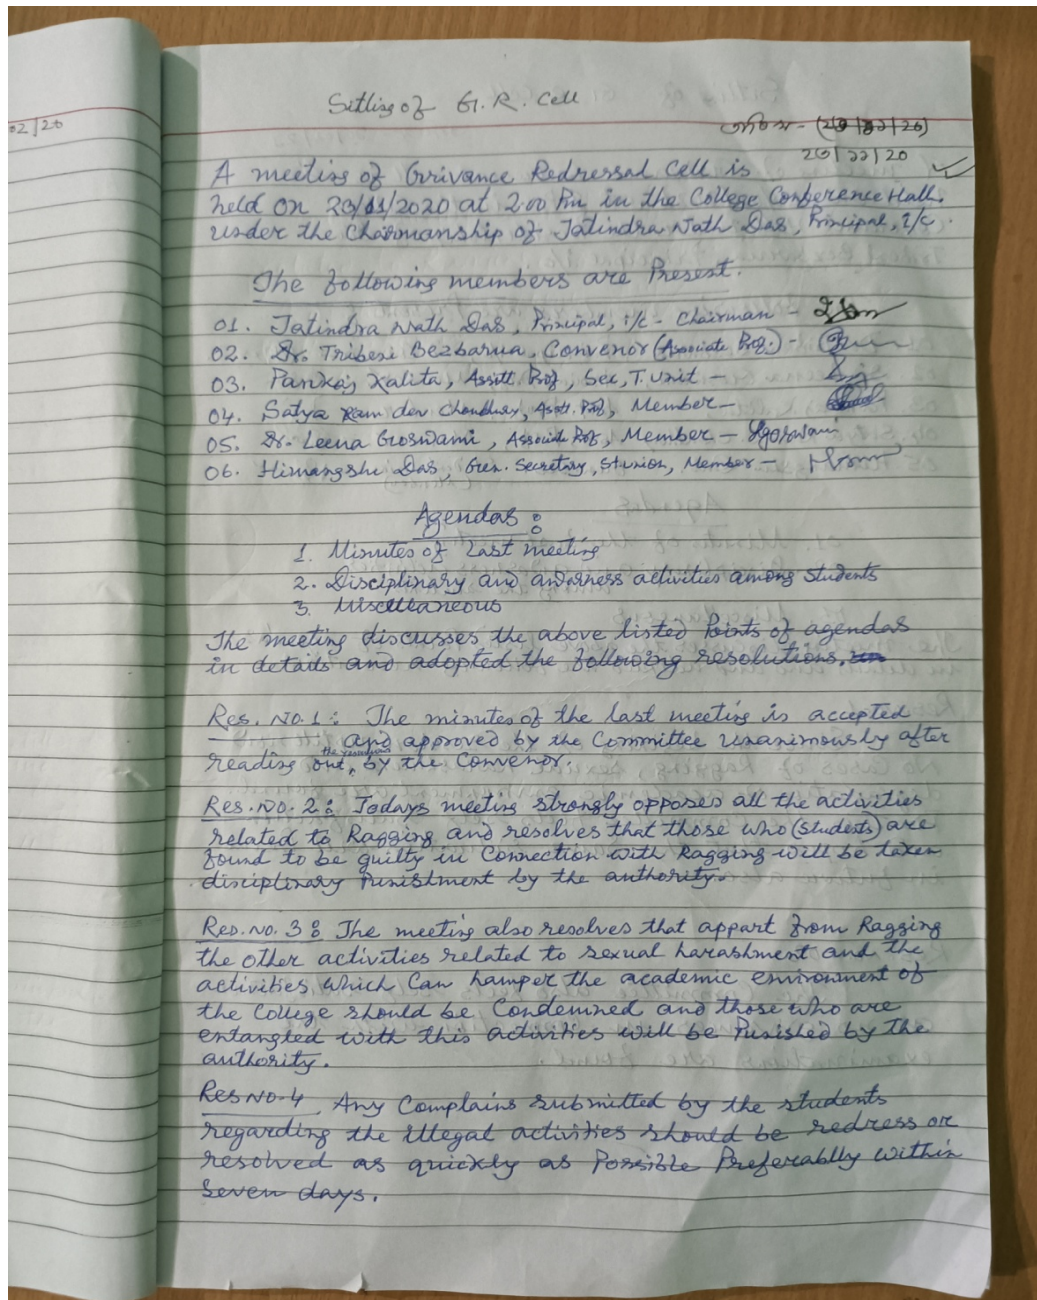 02/20
Sitting of G.R. Cell
তাৰিখ - (20/11/20)
20/11/20
A meeting of Grrivance Redressal Cell is
held on 20/11/2020 at 2.00 Pm in the College Conference Hall,
under the Chairmanship of Jatindra Nath Das, Principal, I/c.
The following members are Present.
01. Jatindra Nath Das, Principal, i/c - Chairman -
02. Dr. Tribeni Bezbarua, Convenor (Associate Prof.) -
03. Pankaj Kalita, Asstt. Prof, Sec, T. Unit -
04. Satya Ram dev Choudhury, Asstt. Prof, Member -
05. Dr. Leena Goswami, Associate Prof, Member - Lgoswami
06. Himangshu Das, Gen. Secretary, St union, Member -
Agendas :
1. Minutes of Last meeting
2. Disciplinary and awarness activities among students
3. Miscellaneous
The meeting discusses the above listed Points of agendas
in details and adopted the following resolutions.
Res. No. 1 : The minutes of the last meeting is accepted
and approved by the Committee unanimously after
reading out, the resolutions by the Convenor.
Res. No. 2 : Todays meeting strongly opposes all the activities
related to Ragging and resolves that those who (students) are
found to be guilty in Connection with Ragging will be taken
disciplinary Punishment by the authority.
Res. No. 3 : The meeting also resolves that appart from Ragging
the other activities related to sexual harashment and the
activities which Can hamper the academic environment of
the College should be Condemned and those who are
entangled with this activities will be Punished by the
authority.
Res No-4 Any Complains submitted by the students
regarding the illegal activities should be redress or
resolved as quickly as Possible Preferablly within
Seven days.